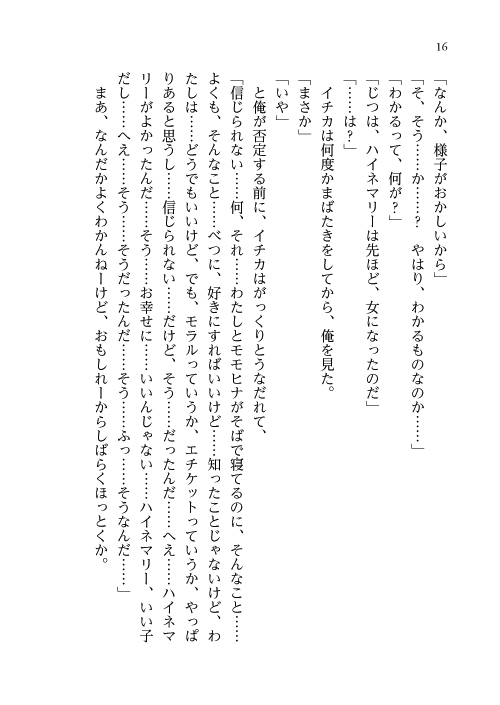 16
「なんか、様子がおかしいから」
「そ、そう……か……？　やはり、わかるものなのか……」
「わかるって、何が？」
「じつは、ハイネマリーは先ほど、女になったのだ」
「……は？」
　イチカは何度かまばたきをしてから、俺を見た。
「まさか」
「いや」
　と俺が否定する前に、イチカはがっくりとうなだれて、
「信じられない……何、それ……わたしとモモヒナがそばで寝てるのに、そんなこと……
よくも、そんなこと……べつに、好きにすればいいけど……知ったことじゃないけど、わ
たしは……どうでもいいけど、でも、モラルっていうか、エチケットっていうか、やっぱ
りあると思うし……信じられない……だけど、そう……だったんだ……へえ……ハイネマ
リーがよかったんだ……そう……お幸せに……いいんじゃない……ハイネマリー、いい子
だし……へえ……そう……そうだったんだ……そう……ふっ……そうなんだ……」
　まあ、なんだかよくわかんねーけど、おもしれーからしばらくほっとくか。